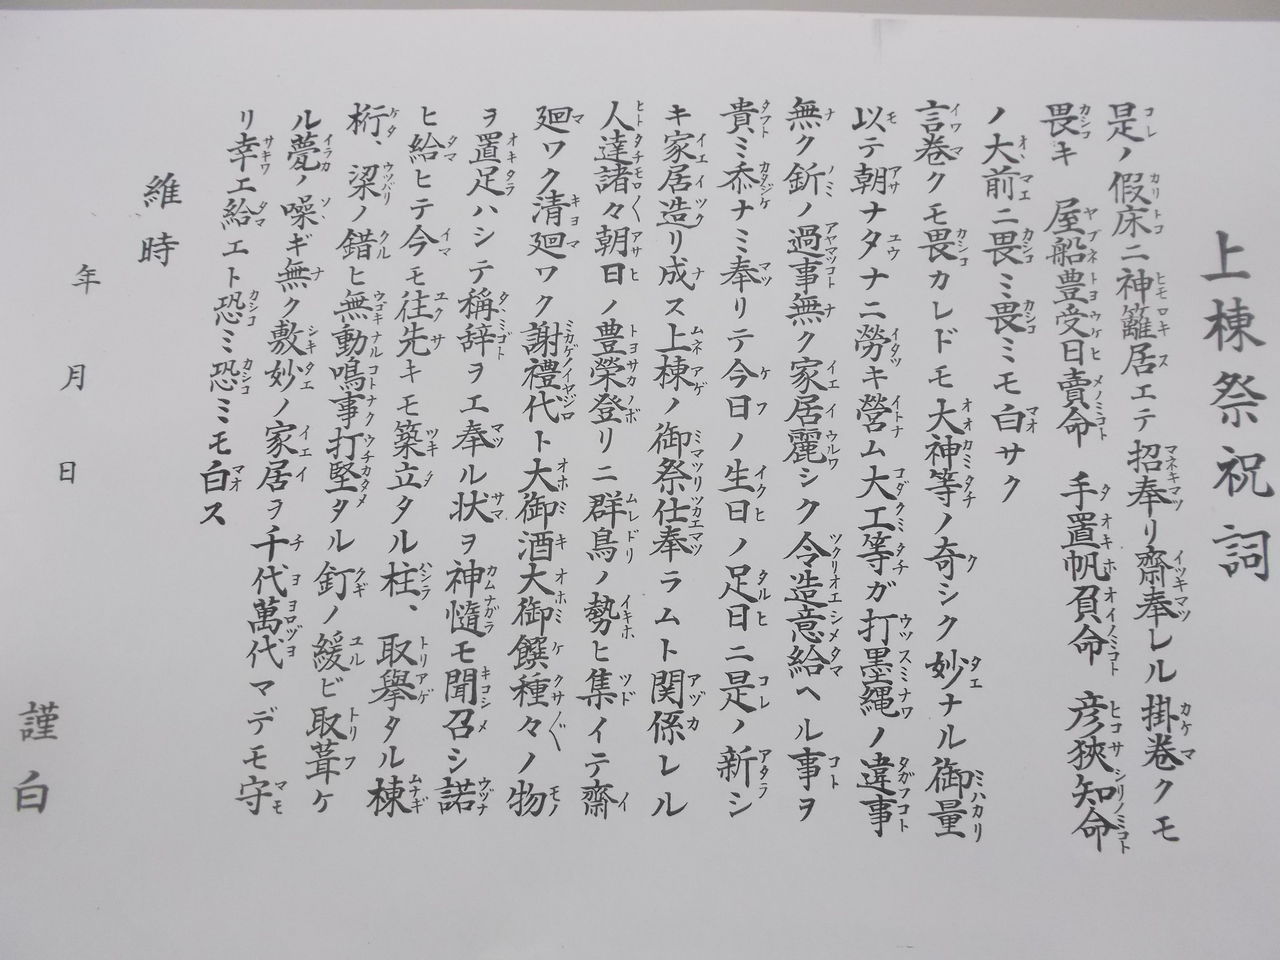 上棟祭祝詞
是ノ假床ニ神籬居エテ 招奉リ齋奉レル掛巻クモ
畏キ 屋船豊受日賣命 手置帆負命 彦狹知命
ノ大前ニ畏ミ畏ミモ白サク
言巻クモ畏カレドモ大神等ノ奇シク妙ナル御量
以テ朝ナタナニ勞キ營ム大工等ガ打墨縄ノ違事
無ク釿ノ過事無ク家居麗シク令造意給ヘル事ヲ
貴ミ忝ナミ奉リテ今日ノ生日ノ足日ニ是ノ新シ
キ家居造リ成ス上棟ノ御祭仕奉ラムト関係レル
人達諸々朝日ノ豊榮登リニ群鳥ノ勢ヒ集イテ齋
廻ワク清廻ワク謝禮代ト大御酒大御饌種々ノ物
ヲ置足ハシテ稱辞ヲエ奉ル状ヲ神隨モ聞召シ諾
ヒ給ヒテ今モ往先キモ築立タル柱、取擧タル棟
桁、梁ノ錯ヒ無動鳴事打堅タル釘ノ緩ビ取葺ケ
ル甍ノ噪ギ無ク敷妙ノ家居ヲ千代萬代マデモ守
リ幸エ給エト恐ミ恐ミモ白ス
維時
年 月 日
謹白